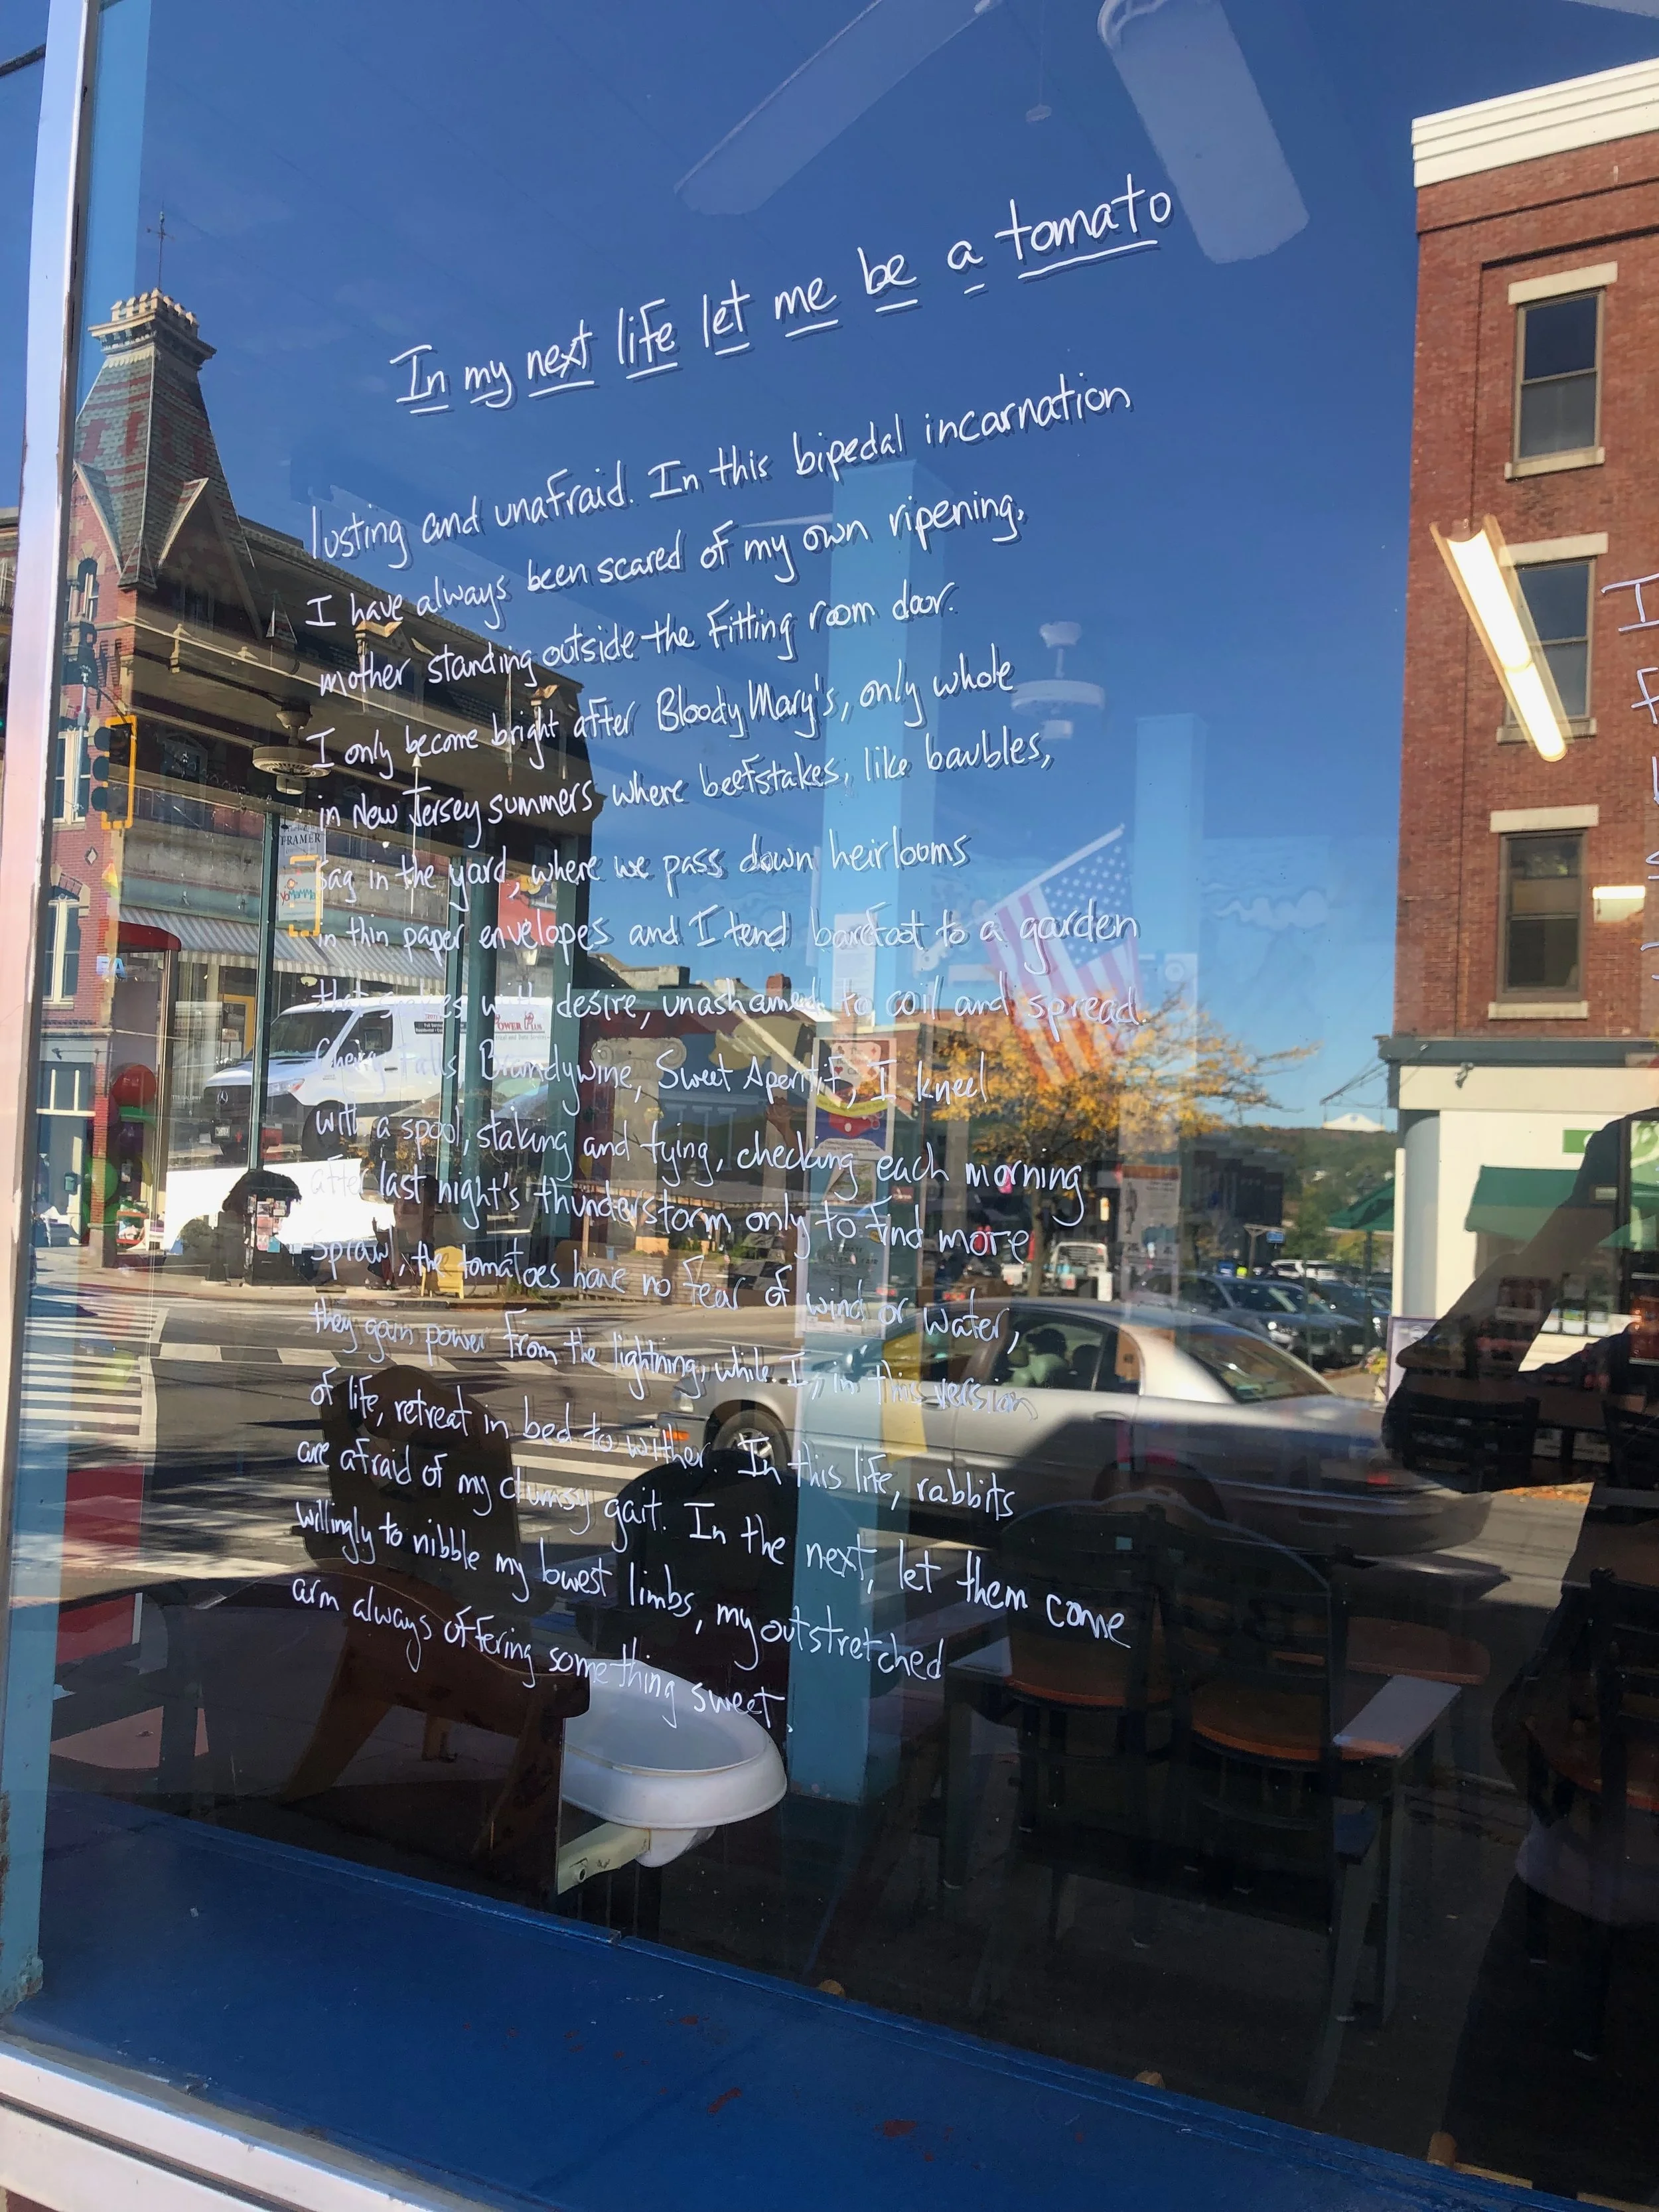 In my next life let me be a tomato
lusting and unafraid. In this bipedal incarnation
I have always been scared of my own ripening,
mother standing outside the fitting room door.
I only become bright after Bloody Mary's, only whole
in New Jersey summers where beefstakes, like baubles,
sag in the yard, where we pass down heirlooms
in thin paper envelopes and I tend barefoot to a garden
that snakes with desire, unashamed to coil and spread.
Cherry Falls, Brandywine, Sweet Aperitif, I kneel
with a spool, staking and tying, checking each morning
after last night's thunderstorm only to find more
sprawl, the tomatoes have no fear of wind or water,
they gain power from the lightning, while I, in this version
of life, retreat in bed to wither. In this life, rabbits
are afraid of my clumsy gait. In the next, let them come
willingly to nibble my lowest limbs, my outstretched
arm always offering something sweet.
FRAMER
YoMaMMa
POWER Plus